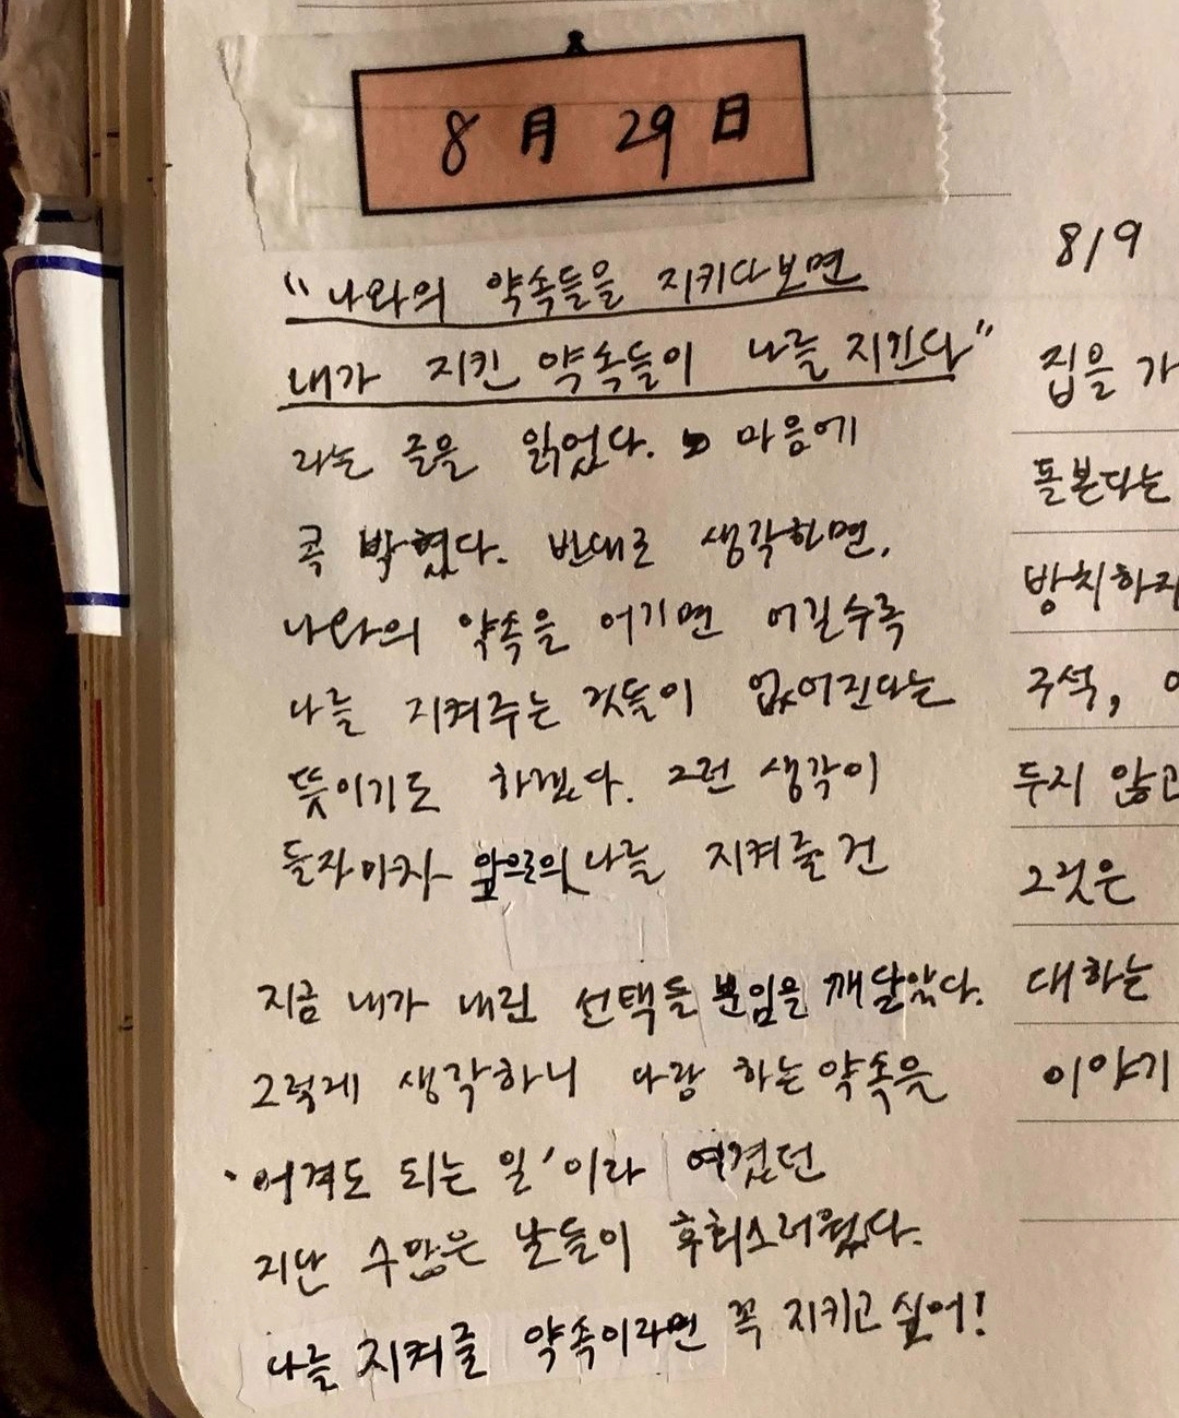 8月 29日
"나와의 약속들을 지키다보면
내가 지킨 약속들이 나를 지킨다"
라는 글을 읽었다. 마음에
콕 박혔다. 반대로 생각하면,
나와의 약속을 어기면 어길수록
나를 지켜주는 것들이 없어진다는
뜻이기도 하겠다. 그런 생각이
들자마자 앞으로의 나를 지켜줄 건
지금 내가 내린 선택들 뿐임을 깨달았다.
그렇게 생각하니 나랑 하는 약속을
'어겨도 되는 일'이라 여겼던
지난 수많은 날들이 후회스러웠다.
나를 지켜줄 약속이라면 꼭 지키고 싶어!
8/9
집을 가
돌본다는
방치하지
구석, 이
두지 않고
그것은
대하는
이야기